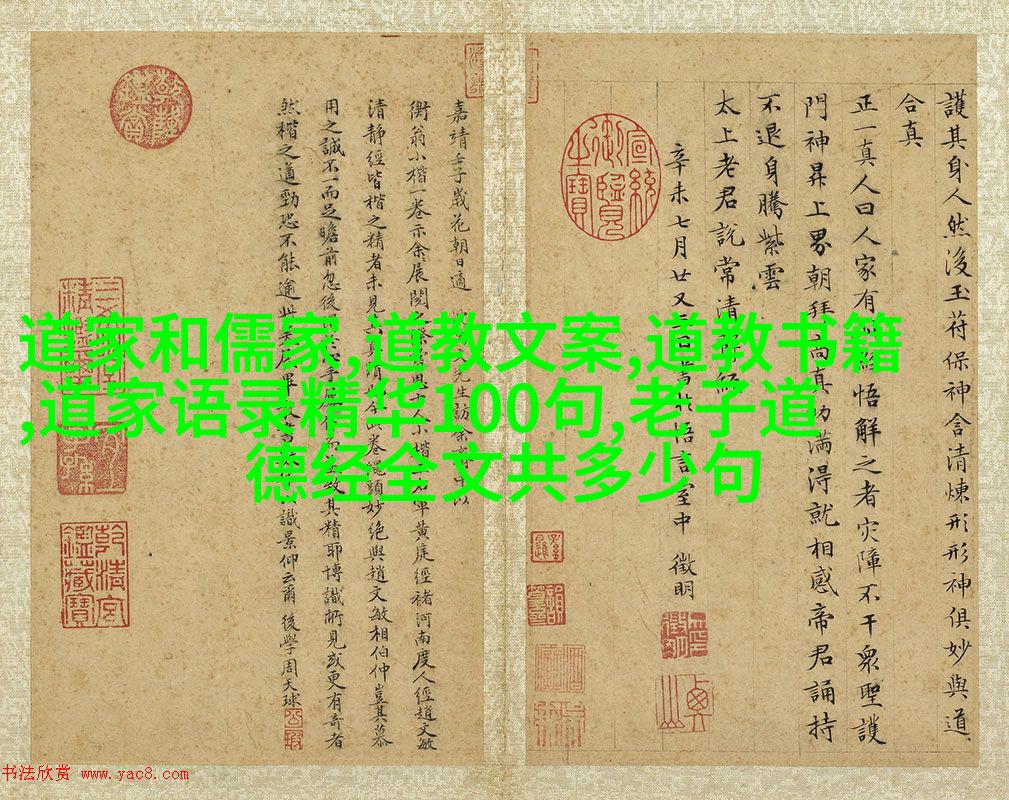 道家和儒家,道教文案,道教书籍
,道家语录精华100句,老子道
德经全文共多少句
護其身人然後玉苻保神舍清煉形形神俱妙與道
合真
正一真人曰人家有經悟解之者灾障不干衆聖護
門神昇上界朝拜高真功滿淂就相感帝君誦持
不退身騰紫雲
太上老君說常清
辛未七月廿又悟言室中 徵明
嘉靖壬子歲花朝日適先生訪余
衡翁小楷一卷示余展閱之軍黃庭經褚河南度人經趙文敏
清静經皆楷之精者未見此卷蠅頭妙絶與趙文敏相伯仲豈其慕
用之誠不一而足瞻前忽後其精耶博識所見或更有奇者
然楷之遒勁恐不能逾此識景仰云爾 後學周天球
书法欣赏 www.yac8.com